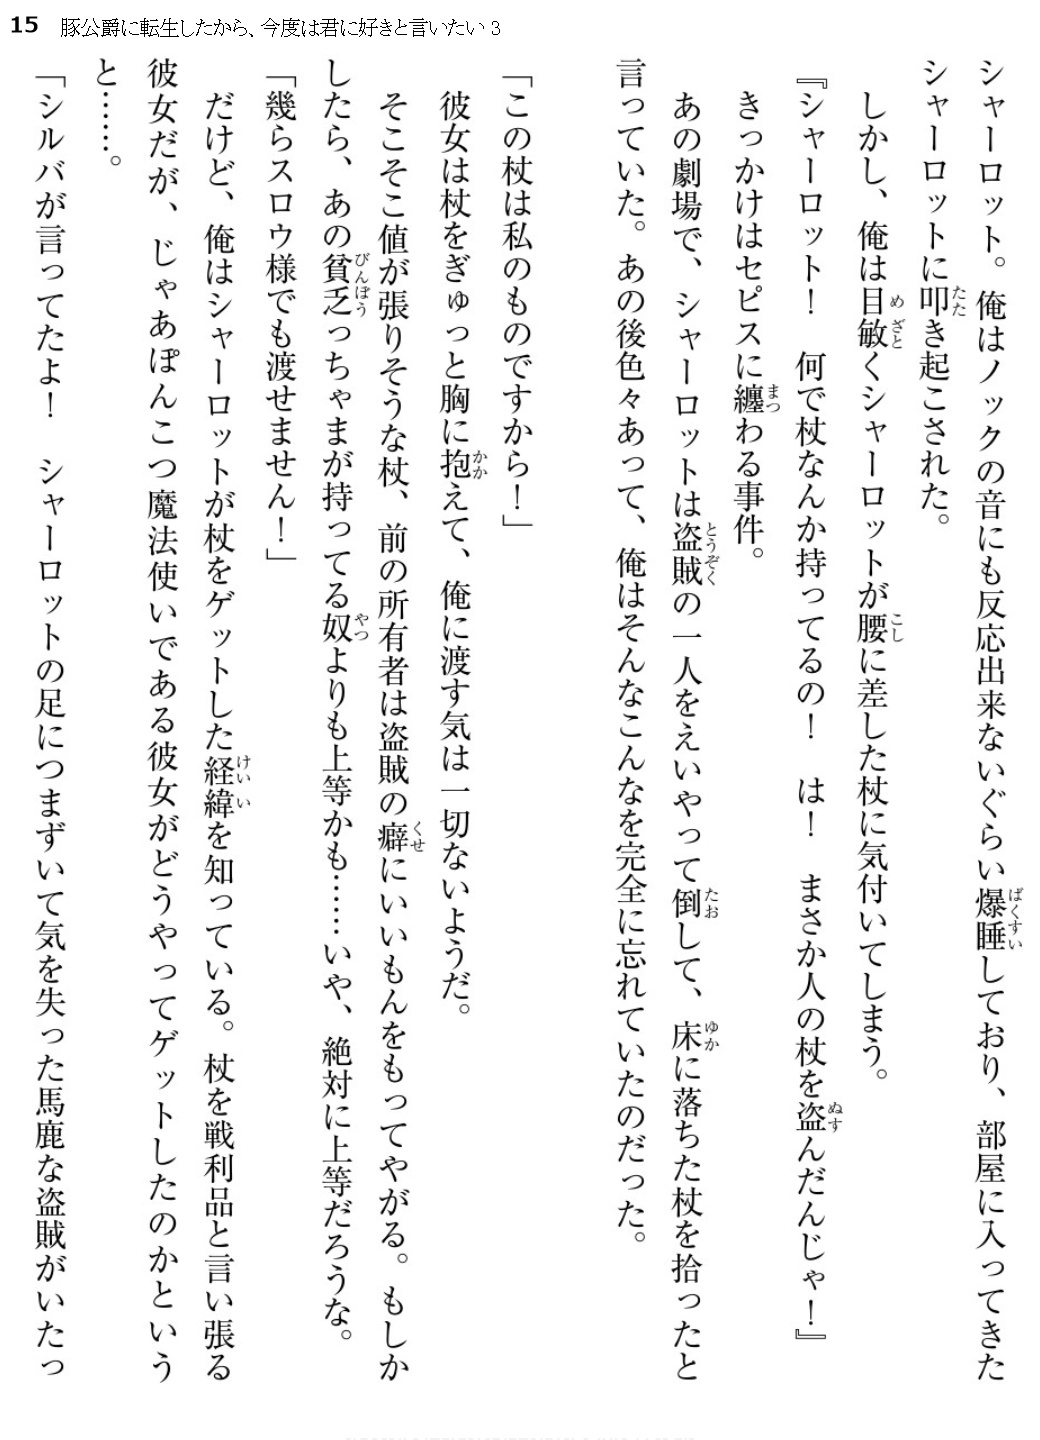 15 豚公爵に転生したから、今度は君に好きと言いたい 3
シャーロット。俺はノックの音にも反応出来ないぐらい爆睡しており、部屋に入ってきた
シャーロットに叩き起こされた。
しかし、俺は目敏くシャーロットが腰に差した杖に気付いてしまう。
『シャーロット！　何で杖なんか持ってるの！　は！　まさか人の杖を盗んだんじゃ！』
きっかけはセピスに纏わる事件。
あの劇場で、シャーロットは盗賊の一人をえいやって倒して、床に落ちた杖を拾ったと
言っていた。あの後色々あって、俺はそんなこんなを完全に忘れていたのだった。
「この杖は私のものですから！」
彼女は杖をぎゅっと胸に抱えて、俺に渡す気は一切ないようだ。
そこそこ値が張りそうな杖、前の所有者は盗賊の癖にいいもんをもってやがる。もしか
したら、あの貧乏っちゃまが持ってる奴よりも上等かも……いや、絶対に上等だろうな。
「幾らスロウ様でも渡せません！」
だけど、俺はシャーロットが杖をゲットした経緯を知っている。杖を戦利品と言い張る
彼女だが、じゃあぽんこつ魔法使いである彼女がどうやってゲットしたのかという
と……。
「シルバが言ってたよ！　シャーロットの足につまずいて気を失った馬鹿な盗賊がいたっ